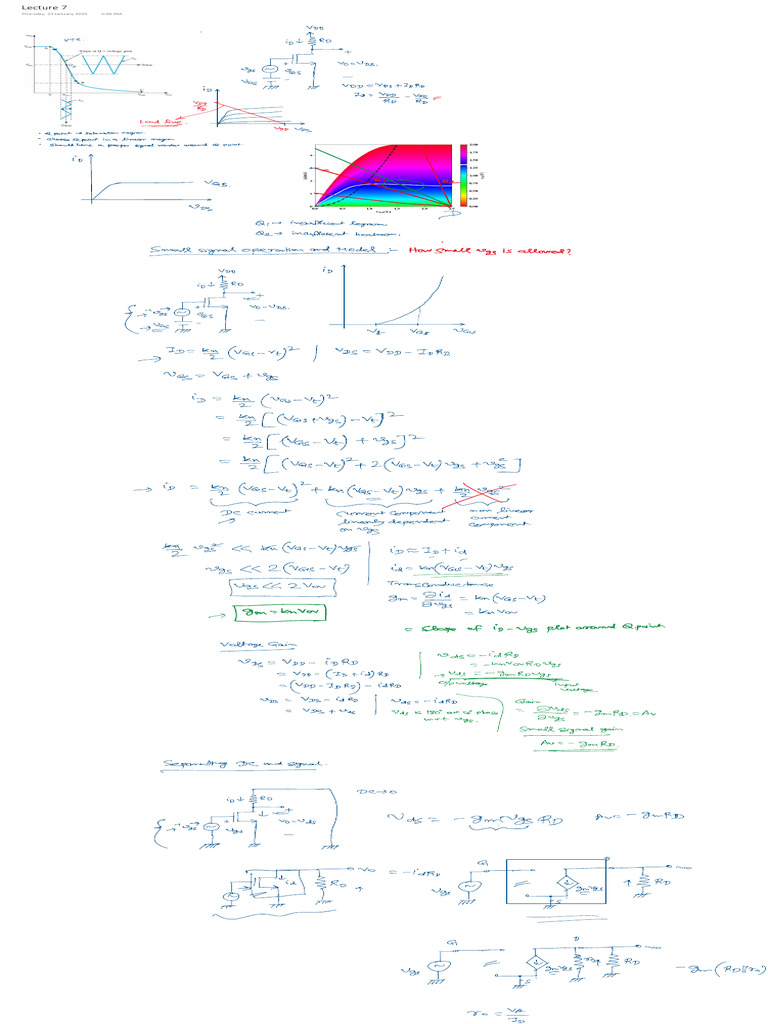 Lecture 7
Thursday, 19 January 2023
VTC
VDD
iD↓ RD
vO=vDS
vgs
VGS
VDD = vDS + iDRD
iD = VDD/RD − vDS/RD
iD
VDD/RD
Load line
VDD vDS
• Q point → Saturation region.
• Choose Q point in a linear region
iD
VGS
vDS
Q1 → insufficient legroom
Q2 → insufficient headroom.
Small signal operation and Model :- How small vgs is allowed?
VDD
iD↓ RD
vO=vDS
iD
Vt VGS vGS
→ ID = kn/2 (VGS−Vt)² | VDS = VDD − IDRD
vGS = VGS + vgs
iD = kn/2 (vGS−Vt)²
= kn/2 [(VGS+vgs)−Vt]²
= kn/2 [(VGS−Vt) + vgs]²
= kn/2 [(VGS−Vt)² + 2(VGS−Vt)vgs + vgs²]
→ iD = kn/2 (VGS−Vt)² + kn(VGS−Vt)vgs + kn/2 vgs²
DC current
current component linearly dependent on vgs
non linear current component
kn/2 vgs² << kn(VGS−Vt)vgs
vgs << 2(VGS−Vt)
vgs << 2VOV
→ gm = knVOV
iD ≈ ID + id
id = kn(VGS−Vt)vgs
Transconductance
gm = ∂id/∂vgs = kn(VGS−Vt)
= knVOV
= Slope of iD−vGS plot around Q point
Voltage Gain
vDS = VDD − iDRD
= VDD − (ID + id)RD
= (VDD − IDRD) − idRD
vDS = VDS − idRD
= VDS + vds
vds = −idRD
= −knVOVRDvgs
→ vds = −gmRDvgs
O/p voltage Input voltage
vds = −idRD
vds is 180° out of phase w.r.t. vgs.
Gain
= ∂vds/∂vgs = −gmRD = Av
Small signal gain
Av = −gmRD
Separating DC and signal.
iD↓ RD
vO=vds
vgs
DC→0
vds = −gmvgsRD Av = −gmRD
vO = −idRD
id RD
G D
vgs gmvgs RD vO
S
G D
vgs gmvgs ro RD vO
S
−gm(RD||ro)
ro = VA/ID